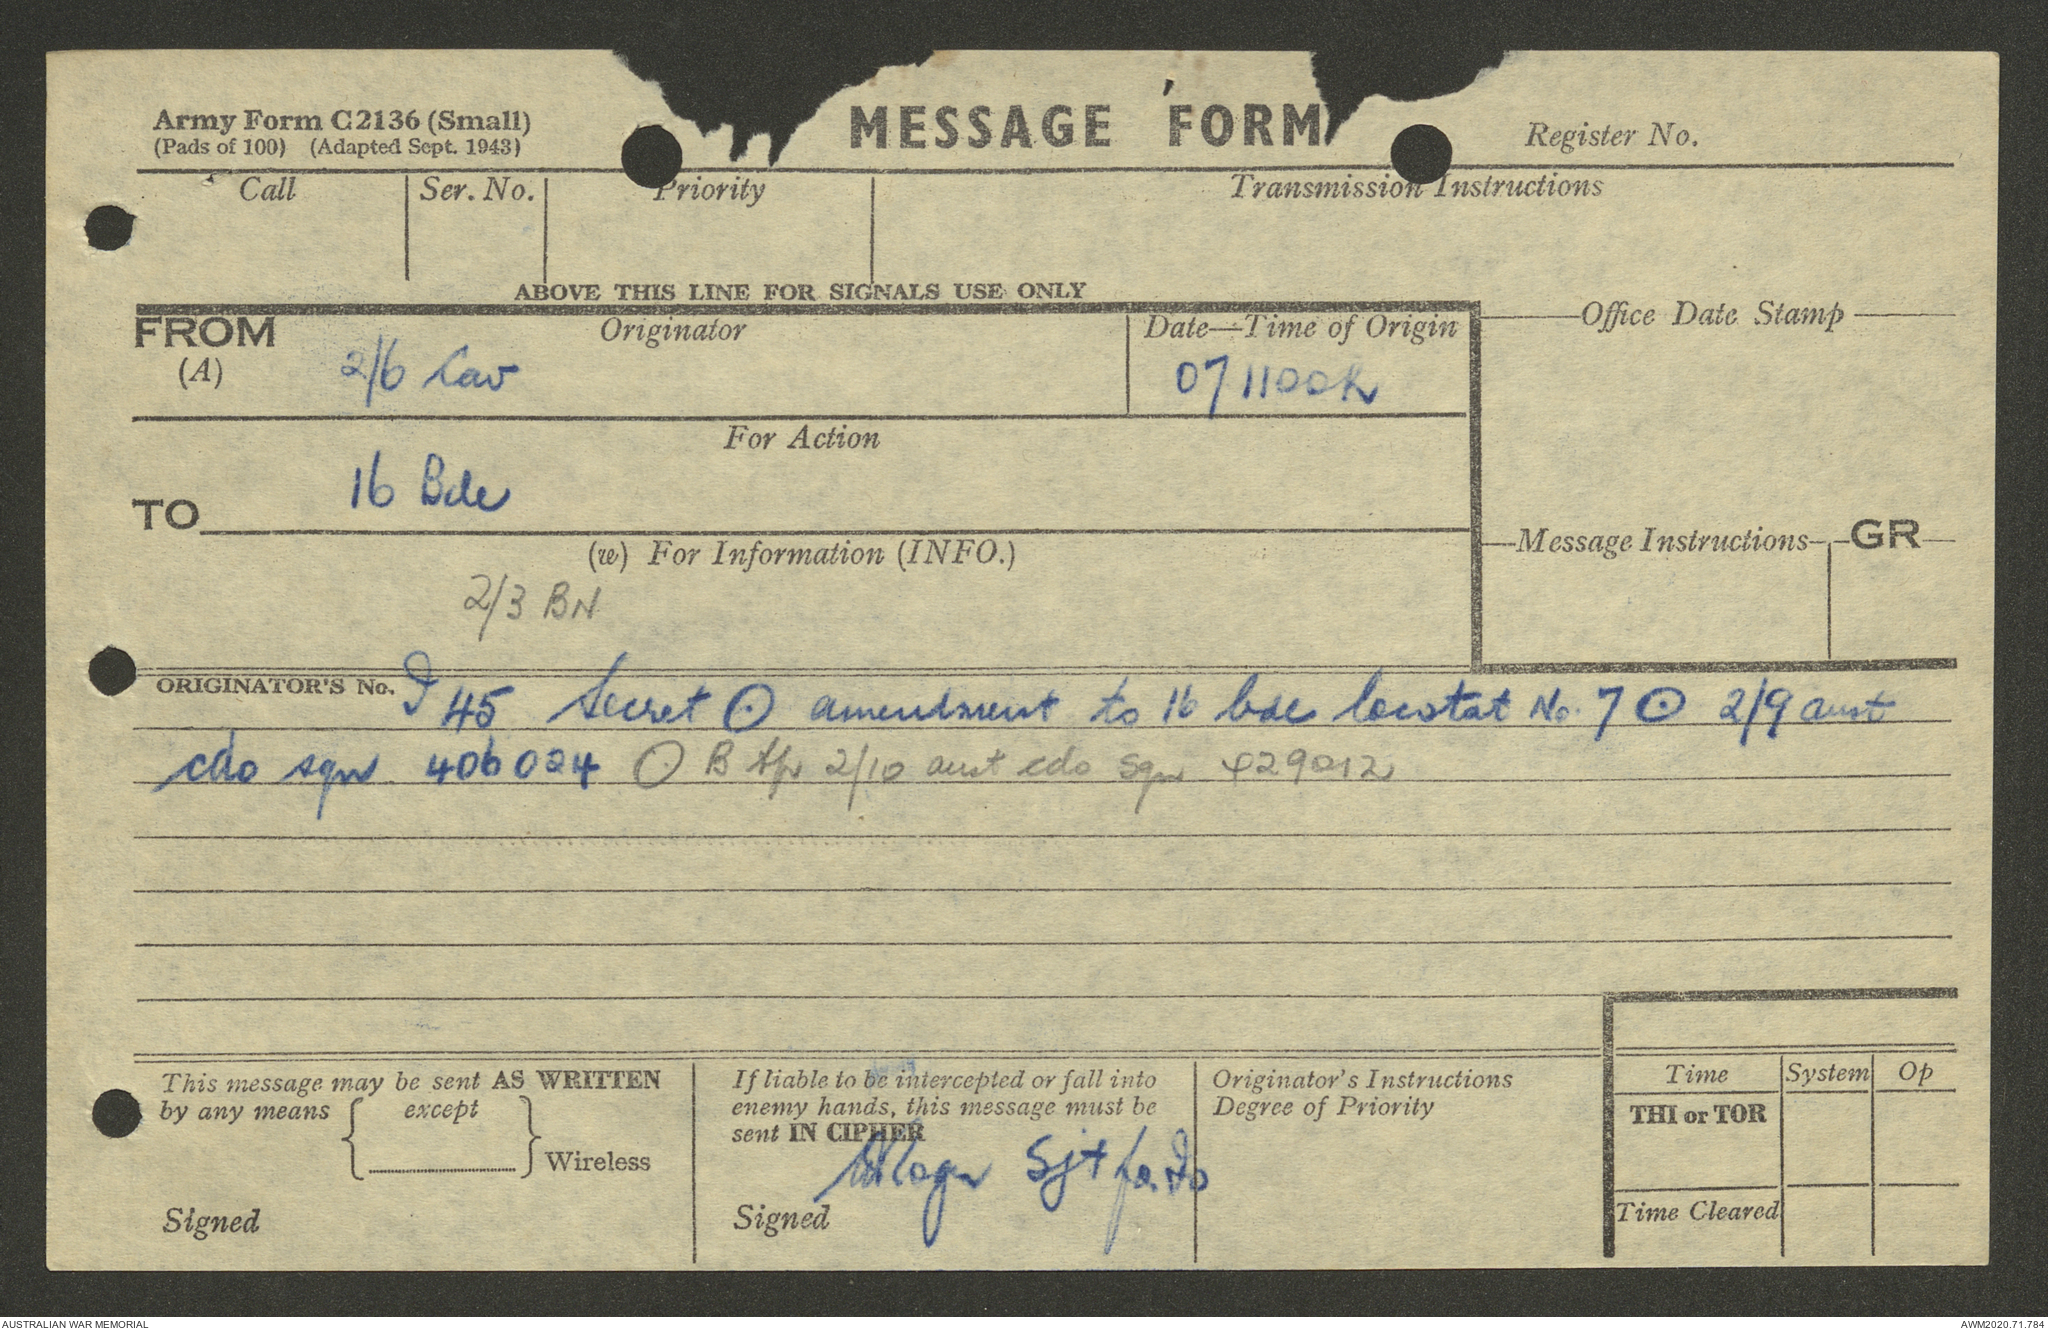 Army Form C2136 (Small)
(Pads of 100) (Adapted Sept. 1943)
MESSAGE FORM
Register No.
Call
Ser. No.
Priority
Transmission Instructions
ABOVE THIS LINE FOR SIGNALS USE ONLY
FROM
(A)
Originator
2/6 Cav
Date—Time of Origin
071100K
Office Date Stamp
For Action
16 Bde
TO
(w) For Information (INFO.)
2/3 BN
Message Instructions
GR
ORIGINATOR'S No. I 45 Secret ⊙ amendment to 16 bde locstat No. 7 ⊙ 2/9 aust
cdo sqn 406024 ⊙ B tp 2/10 aust cdo sqn 429012
This message may be sent AS WRITTEN
by any means { except }
Wireless
Signed
If liable to be intercepted or fall into
enemy hands, this message must be
sent IN CIPHER
Sjt for IO
Signed
Originator's Instructions
Degree of Priority
Time
System
Op
THI or TOR
Time Cleared
AUSTRALIAN WAR MEMORIAL
AWM2020.71.784